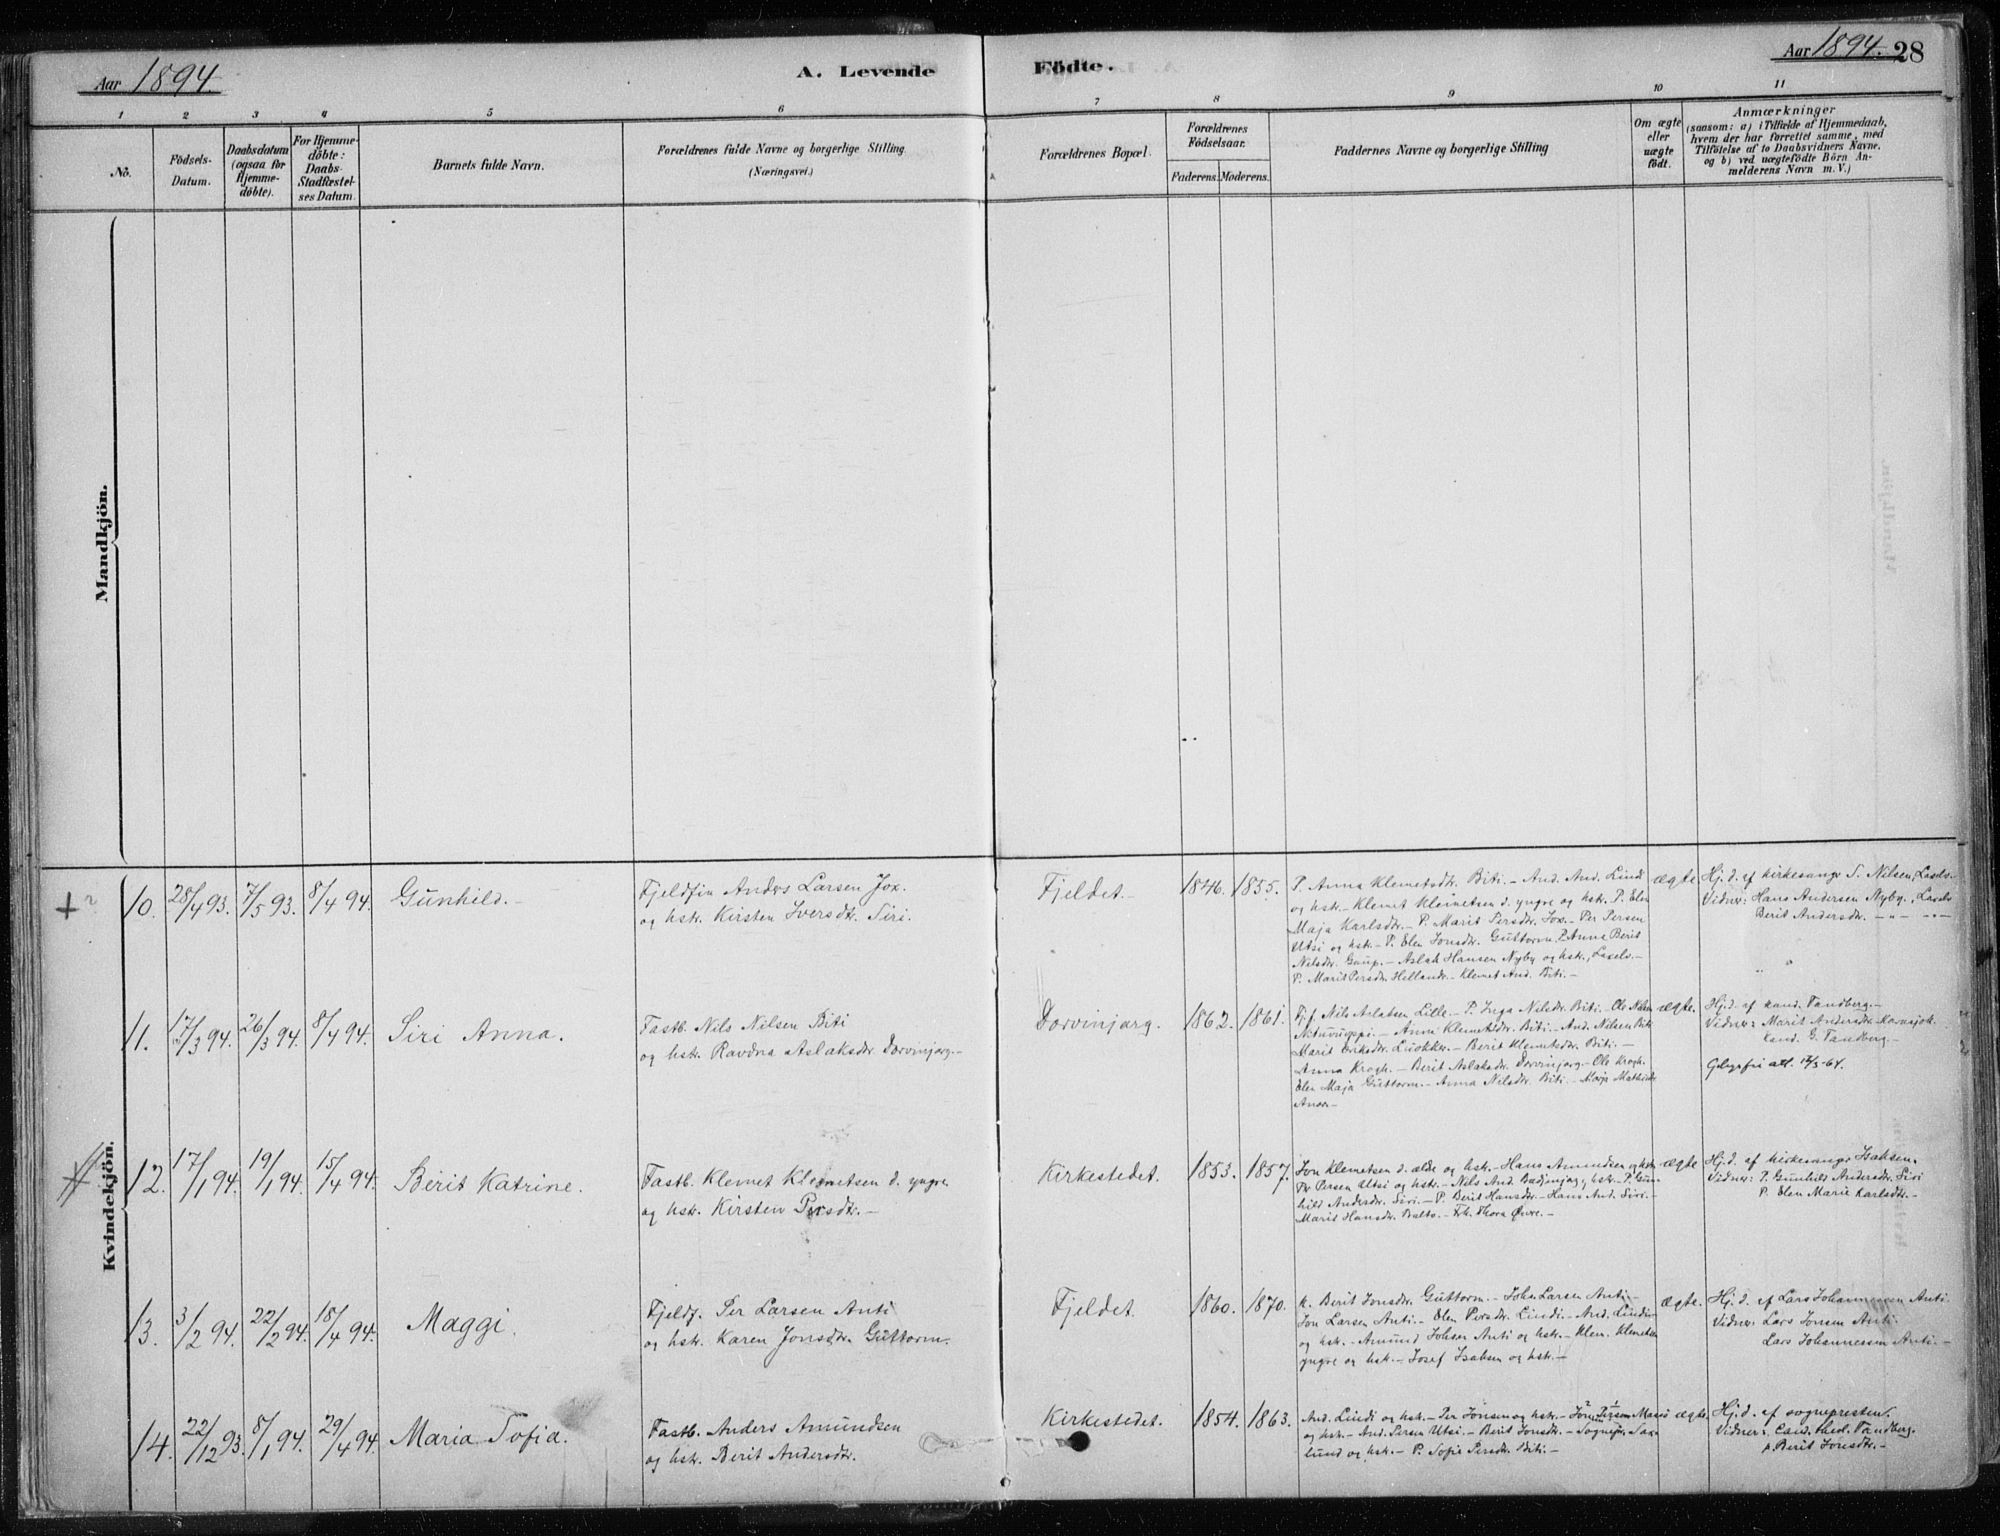 Aar 1894.
A. Levende Födte.
Aar 1894. 28
1 2 3 4 5 6 7 8 9 10 11
No.
Födsels-Datum.
Daabsdatum (ogsaa for Hjemmedöbte).
For Hjemmedöbte: Daabs-Stadfæstelses Datum.
Barnets fulde Navn.
Forældrenes fulde Navne og borgerlige Stilling.
(Næringsvei.)
Forældrenes Bopæl.
Forældrenes Födselsaar.
Faderens. Moderens.
Faddernes Navne og borgerlige Stilling
Om ægte eller uægte födt.
Anmærkninger
(saasom: a) i Tilfælde af Hjemmedaab,
hvem der har forrettet samme, med
Tilföielse af to Daabsvidners Navne,
og b) ved uægtefödte Börn An-
melderens Navn m. V.)
Mandkjön.
Kvindekjön.
10. 28/4 93. 7/5 93. 8/4 94. Gunhild.
Fjeldfin Anders Larsen Jox.
og hstr. Kirsten Iversdtr. Siri.
Fjeldet. 1846. 1855.
P. Anna Klemetsdtr. Biti. - And. And. Lindi
og hstr. - Klemet Klemetsen d. yngre og hstr. P. Elen
Maja Karlsdtr. - P. Marit Persdtr. Jox. - Per Persen
Utsi og hstr. - P. Elen Jonsdtr. Guttorm. P. Anna Berit
Nilsdtr. Gaup. - Aslak Hansen Nyby og hstr., Laxelv. -
P. Marit Persdtr. Helland. - Klemet And. Biti. -
ægte.
Hj. d. af kirkesanger S. Nilsen, Laxelv.
Vidner: Hans Andersen Nyby, Laxelv
Berit Andersdtr. - " - " -
11. 17/3 94. 26/3 94. 8/4 94. Siri Anna.
Fastb. Nils Nilsen Biti
og hstr. Ravdna Aslaksdtr. Dorvinjarg. -
Dorvinjarg. 1862. 1861.
Fj.f. Nils Aslaksen Lille. - P. Inga Nilsdtr. Biti. - Ole Nilsen
- Anne Klemetsdtr. Biti. - And. Nilsen Biti.
Marit Eriksdtr. Luokker. - Berit Klemetsdtr. Biti. -
Anna Krogh. - Berit Aslaksdtr. Dorvinjarg. - Ole Krogh.
Elen Maja Guttorm. - Anna Nilsdtr. Biti. - Marja Mathisdtr
ægte.
Hj. d. af kand. Tandberg. -
Vidner: Marit Andersdtr. Karasjok.
kand. G. Tandberg. -
Gebyrfri att. 12/3-64.
12. 17/1 94. 19/1 94. 15/4 94. Berit Katrine.
Fastb. Klemet Klemetsen d. yngre
og hstr. Kirsten Persdtr. -
Kirkestedet. 1853. 1857.
Jon Klemetsen d. ælde og hstr. - Hans Amundsen og hstr.
Per Persen Utsi og hstr. - Nils And. Badjenjarg, hstr. - P. Gun-
hild Andersdtr. Siri. - P. Berit Hansdtr. - Hans And. Siri. -
Marit Hansdtr. Balto. - Frk. Thora Øvre. -
ægte
Hj. d. af kirkesanger Isaksen.
Vidner: P. Gunhild Andersdtr. Siri
P. Elen Marie Karlsdtr. -
13. 3/2 94. 22/2 94. 18/4 94. Maggi.
Fjeldf. Per Larsen Anti
og hstr. Karen Jonsdtr. Guttorm.
Fjeldet 1860. 1870.
k. Berit Jonsdtr. Guttorm. - Johs. Larsen Anti. -
Jon Larsen Anti. - Elen Persdtr. Lindi. - And. Lindi
og hstr. - Amund Johsen Anti og hstr. - Klem. Klemetsen
yngre og hstr. - Josef Isaksen og hstr. -
ægte.
Hj. d. af Lars Johannessen Anti.
Vidner: Lars Jonsen Anti.
Lars Johannessen Anti. -
14. 22/12 93. 8/1 94. 29/4 94. Maria Sofia.
Fastb. Anders Amundsen
og hstr. Berit Andersdtr.
Kirkestedet. 1854. 1863.
And. Lindi og hstr. - Per Jonsen og hstr. - Jon Persen
og hstr. - And. Persen Utsi. - Berit Jonsdtr. - Sognepr. Sax-
lund og hstr. - P. Sofie Persdtr. Biti. -
ægte.
Hj. d. af sognepresten.
Vidner: Cand. theol. Tandberg.
p. Berit Jonsdtr. -